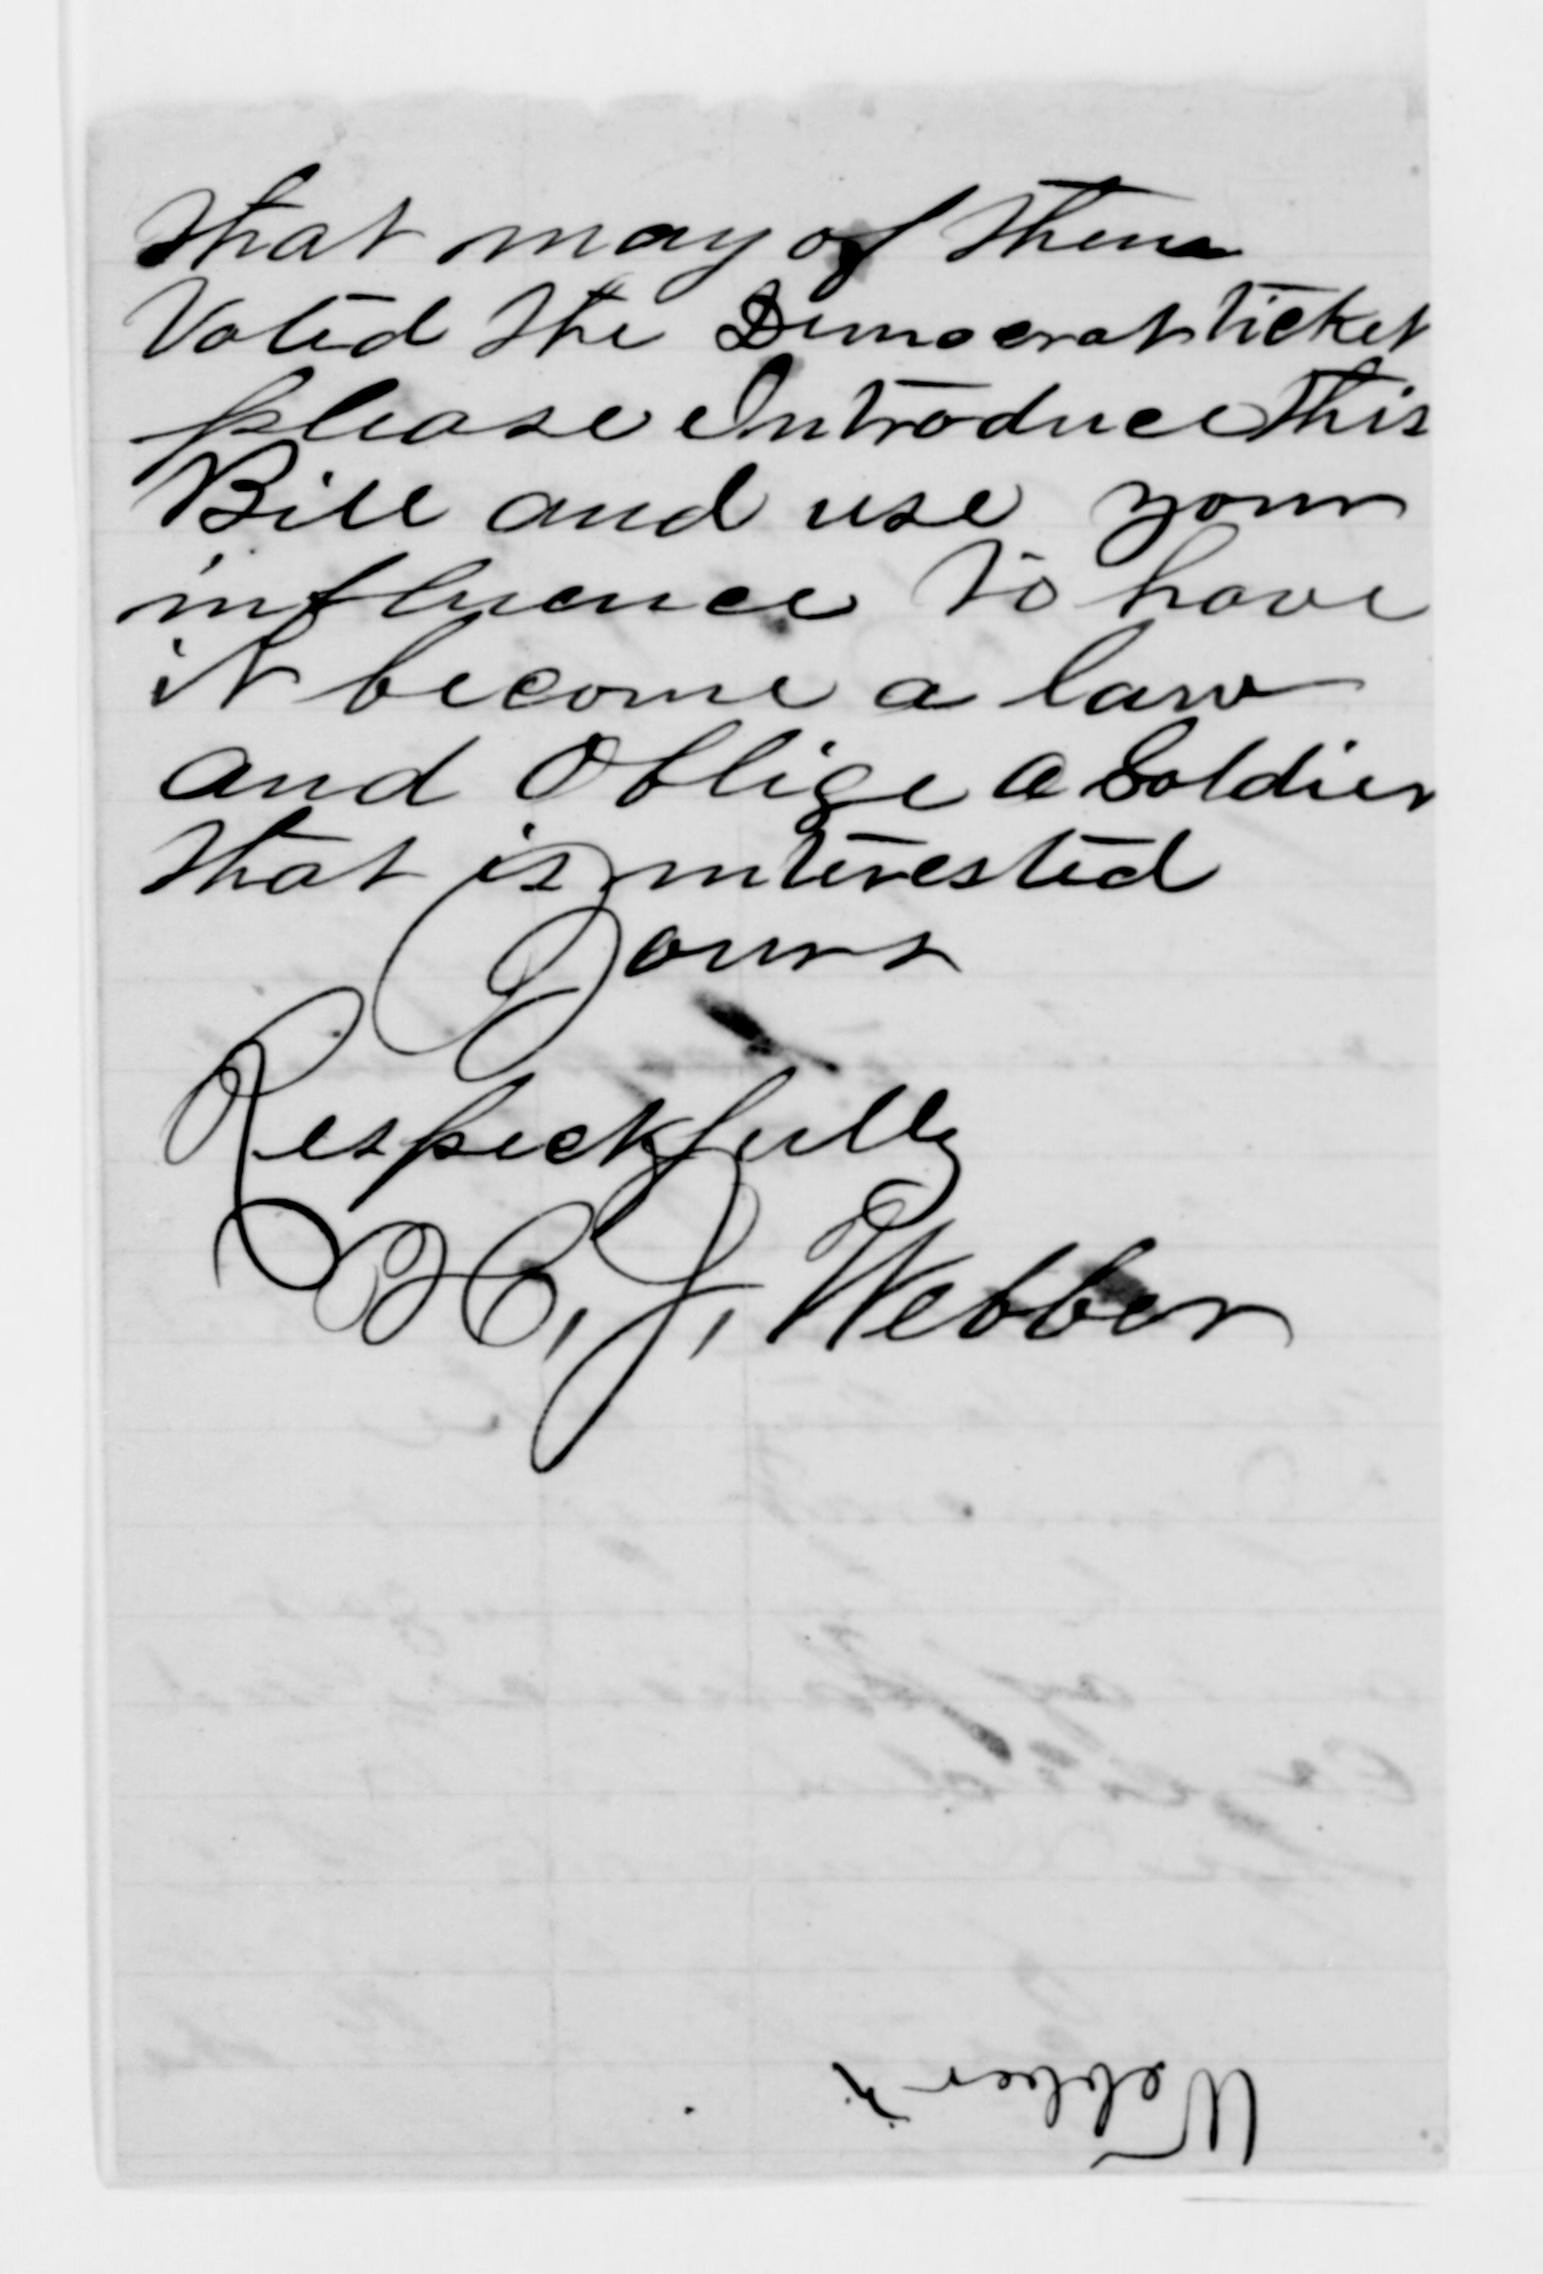 that may of them
Voted the Democrat ticket
please Introduce this
Bill and use your
influence to have
it become a law
and Oblige a Soldier
that is interested
Yours
Respectfully
H. J. Webber
Webber